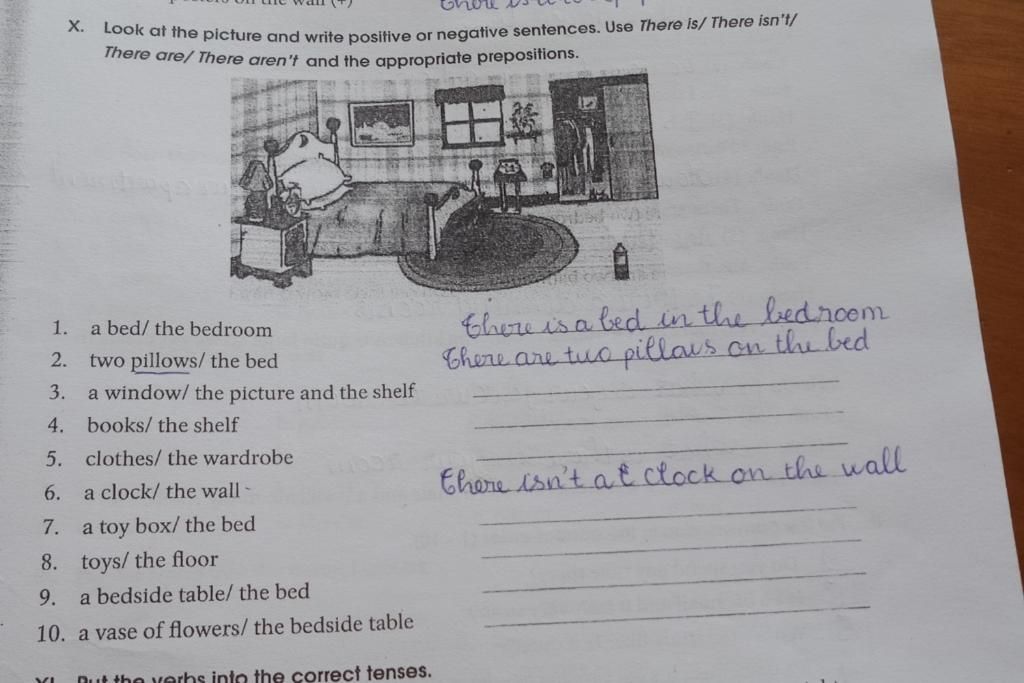 X. Look at the picture and write positive or negative sentences. Use There is/ There isn't/
There are/ There aren't and the appropriate prepositions.
1. a bed/ the bedroom There is a bed in the bedroom
2. two pillows/ the bed There are two pillows on the bed
3. a window/ the picture and the shelf
4. books/ the shelf
5. clothes/ the wardrobe
6. a clock/ the wall There isn't a clock on the wall
7. a toy box/ the bed
8. toys/ the floor
9. a bedside table/ the bed
10. a vase of flowers/ the bedside table
XI. Put the verbs into the correct tenses.